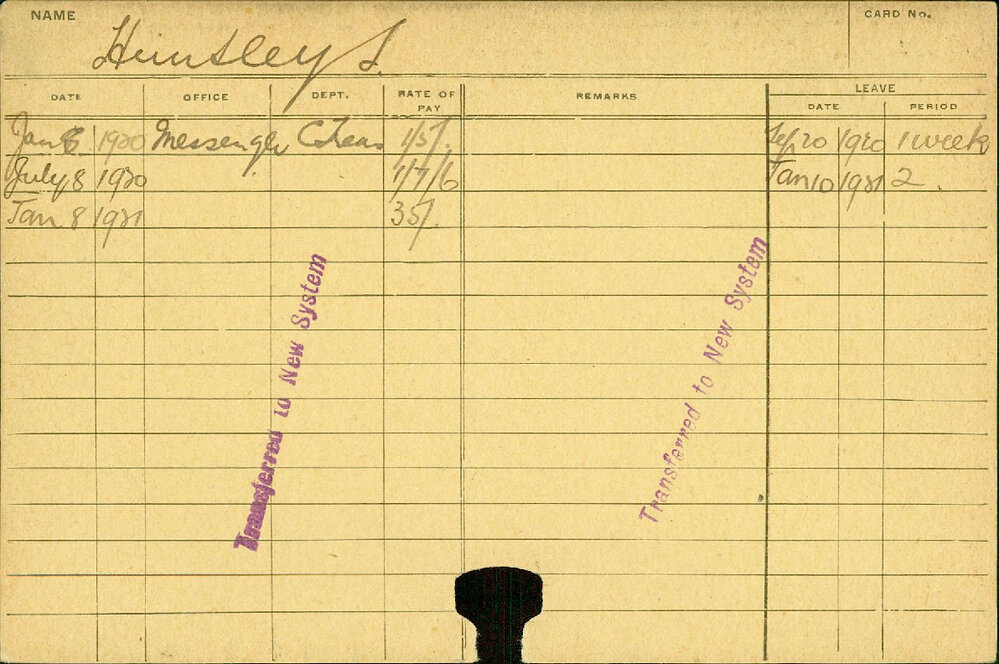 NAME Huntsley S. CARD No.
DATE OFFICE DEPT. RATE OF PAY REMARKS LEAVE
DATE PERIOD
Jan 6 1920 Messenger Cheas 15/. Sep 20 1920 1 week
July 8 1920 1/7/6 Jan 10 1921 2.
Jan 8 1921 35/.
Transferred to New System
Transferred to New System